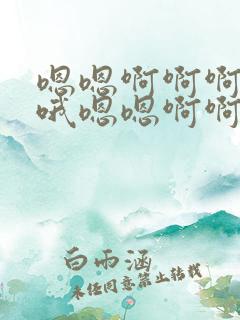 嗯嗯啊啊啊
哦嗯嗯啊啊
白雨涵
未经同意禁止转载